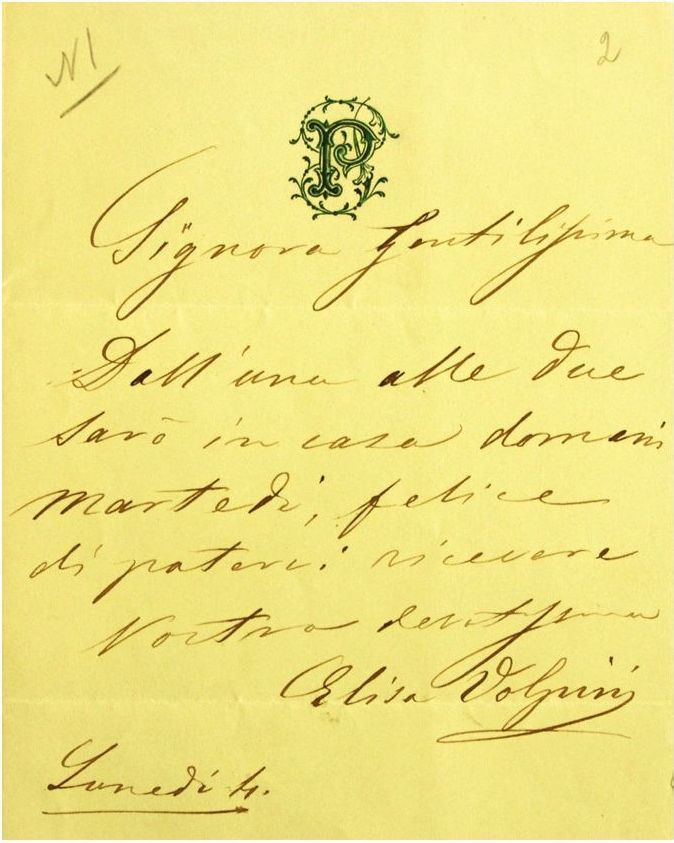 N 1
2
P
Signora Gentilissima
Dall'una alle due
sarò in casa domani
martedì, felice
di potervi ricevere
Vostra devotissima
Elisa Volpini
Lunedì 4.